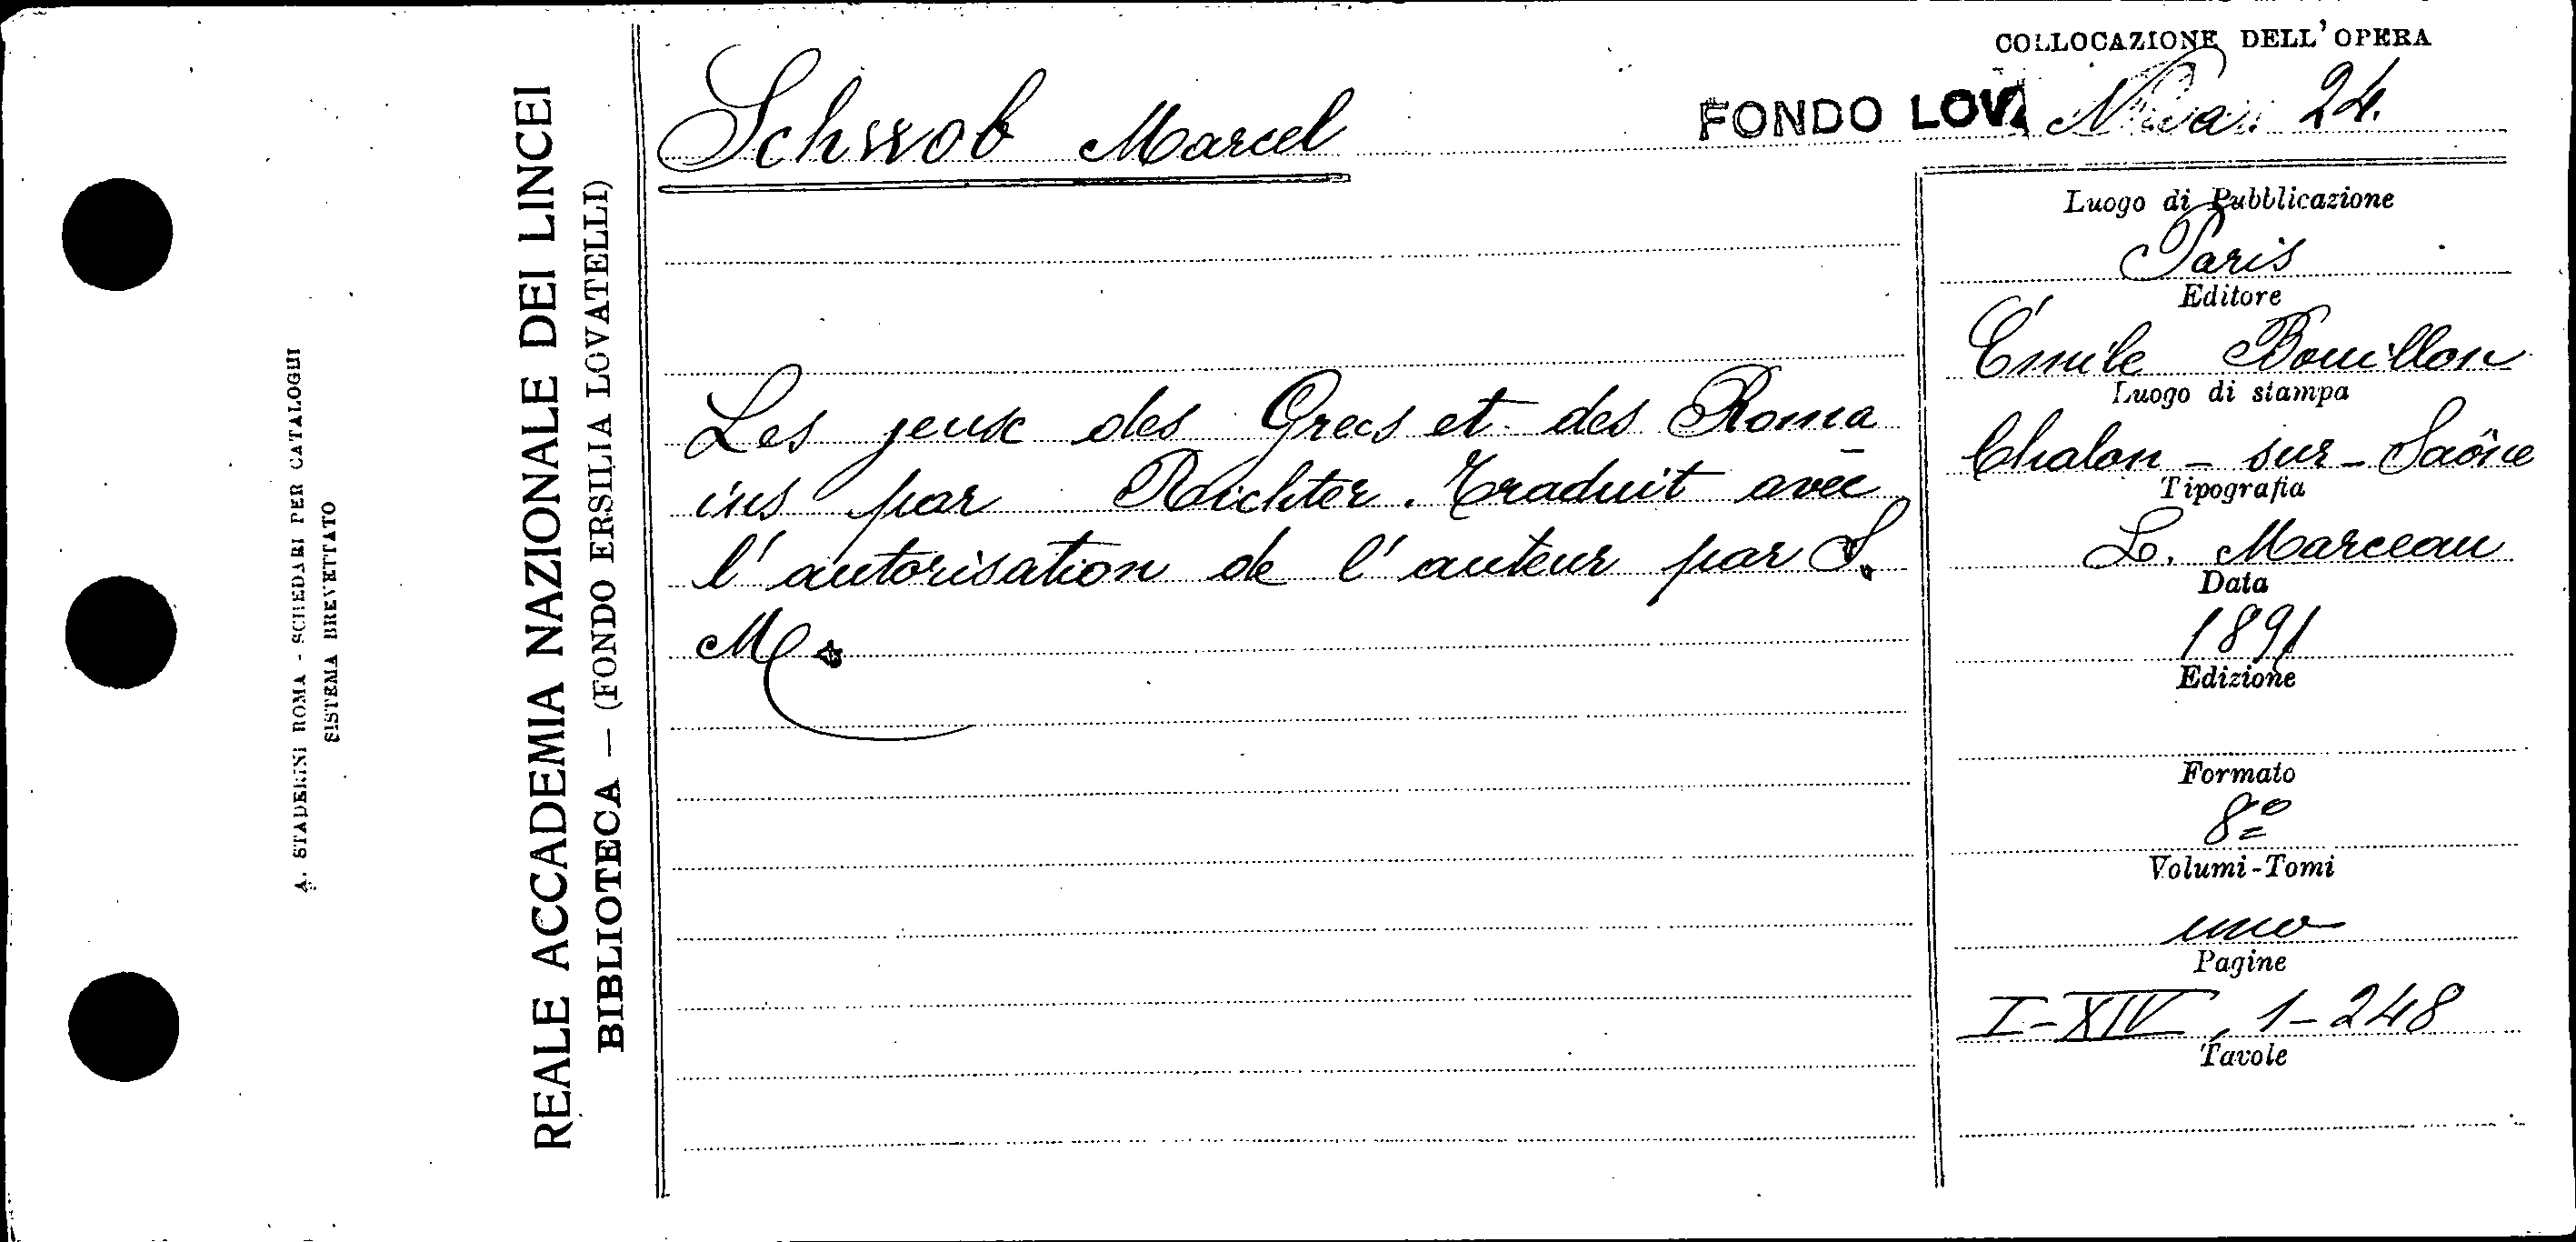 A. STADERINI ROMA - SCHEDARI PER CATALOGHI
SISTEMA BREVETTATO
REALE ACCADEMIA NAZIONALE DEI LINCEI
BIBLIOTECA — (FONDO ERSILIA LOVATELLI)
COLLOCAZIONE DELL'OPERA
FONDO LOV. 24.
Schwob Marcel
Les jeux des Grecs et des Roma
ins par Richter. Traduit avec
l'autorisation de l'auteur par S.
M.
Luogo di Pubblicazione
Paris
Editore
Émile Bouillon
Luogo di stampa
Chalon-sur-Saône
Tipografia
L. Marceau
Data
1891
Edizione
Formato
8º
Volumi-Tomi
uno
Pagine
I-XIV, 1-248
Tavole